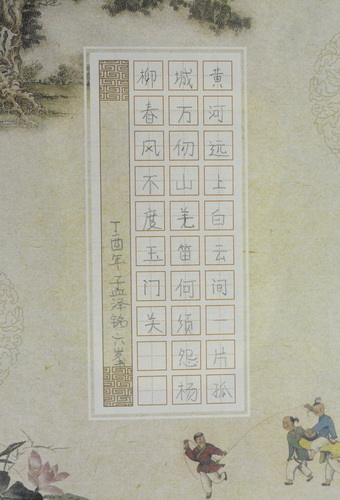 黄河远上白云间一片孤
城万仞山羌笛何须怨杨
柳春风不度玉门关
丁酉年孟泽铭六岁书